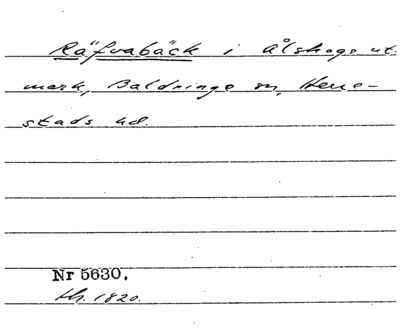 Räfvabäck i Ålskogs ut-
mark, Baldringe sn, Herre-
stads hd.
Nr 5630.
1820.